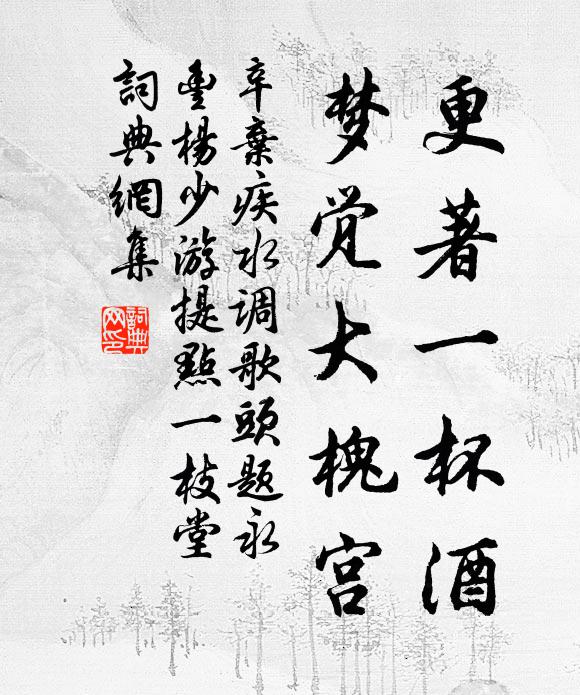 更著一杯酒
梦觉大槐宫
辛棄疾水调歌頭题永
豊楊少游提點一枝堂
詞典網集
詞典网印